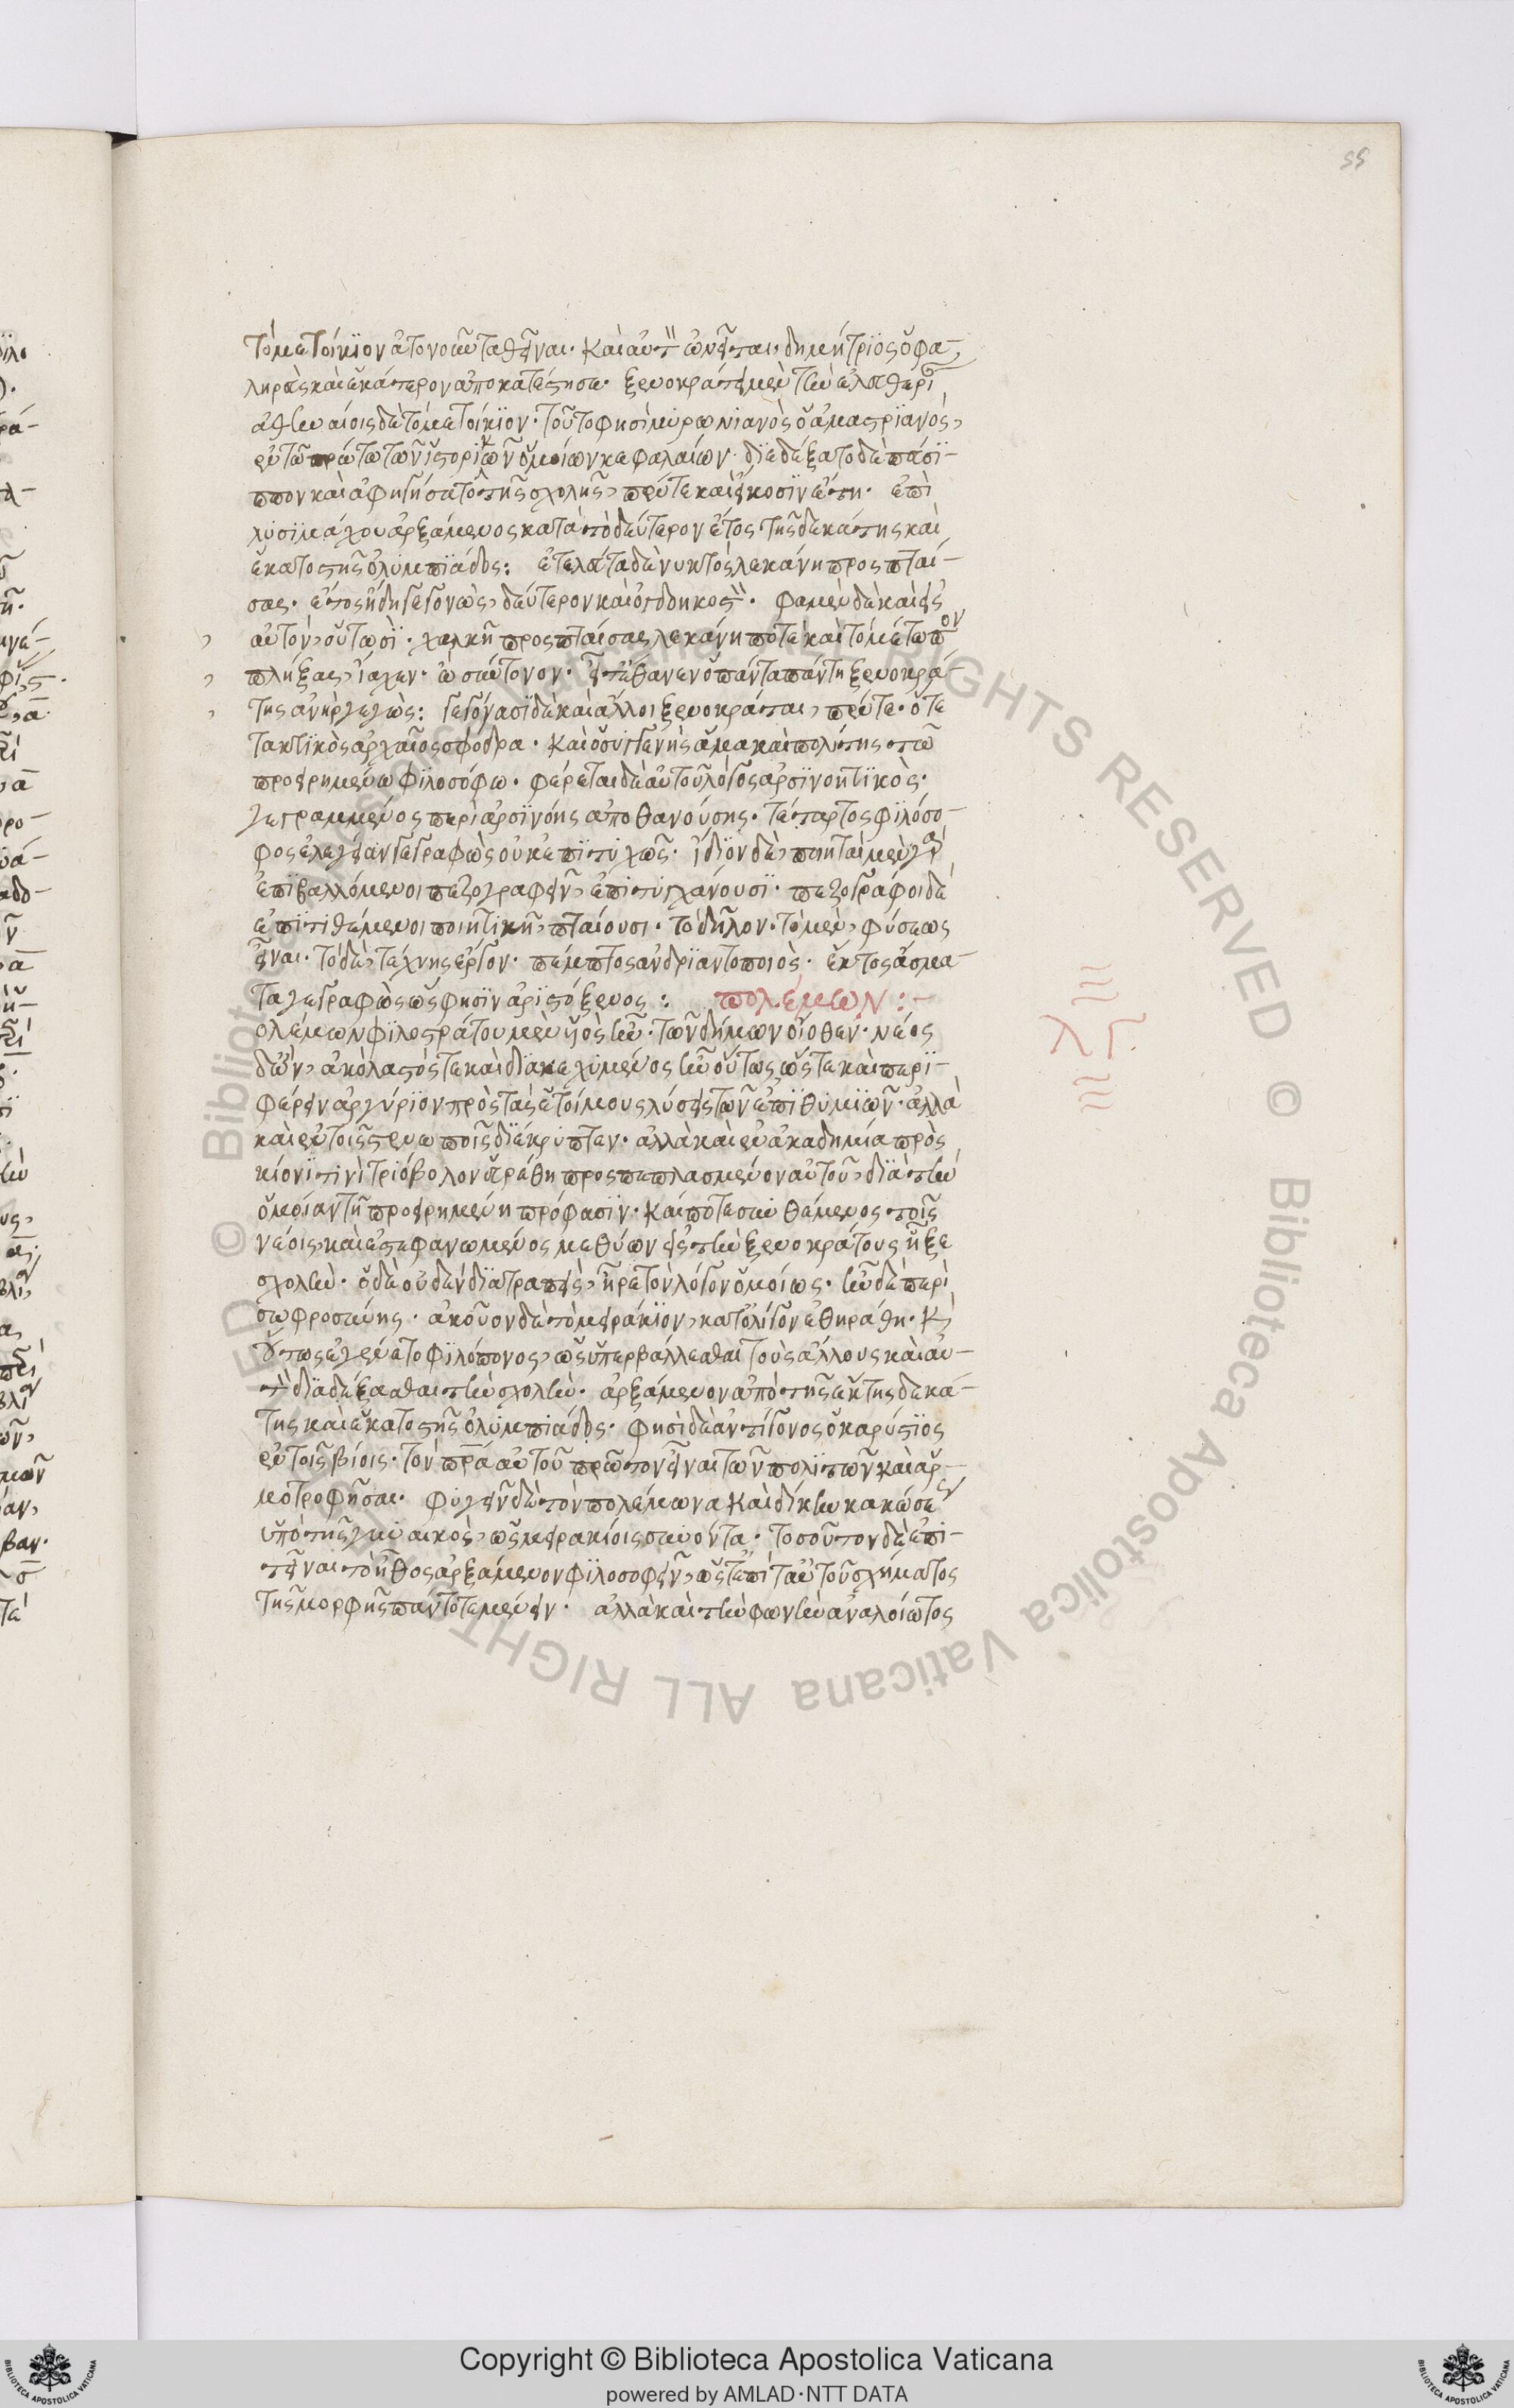 55
τὸ μετοίκιον ἀτονοῦντα θεῖναι. καὶ αὐτὸν ὠνεῖται δημήτριος ὁ φα-
ληρεὺς καὶ ἑκάτερον ἀποκατέστησε. ξενοκράτει μὲν τὴν ἐλευθερί
ἀθηναίοις δὲ τὸ μετοίκιον. τοῦτο φησὶ μυρωνιανὸς ὁ ἀμαστριανός,
ἐν τῶ πρώτω τῶν ἱστορικῶν ὁμοίων κεφαλαίων. διεδέξατο δὲ πεύσι-
ππον καὶ ἀφηγήσατο τῆς σχολῆς, πέντε καὶ εἴκοσιν ἔτη. ἐπὶ
λυσιμάχου ἀρξάμενος κατὰ τὸ δεύτερον ἔτος τῆς δεκάτης καὶ
ἑκατοστῆς ὀλυμπιάδος: ἐτελεύτα δὲ νυκτὸς λεκάνη προσπταί-
σας. ἔτος ἤδη γεγονὼς δεύτερον καὶ ὀγδοηκοστόν. φαμὲν δὲ καὶ εἰς
αὐτὸν, οὑτωσί. χαλκῆ προσπταίσας λεκάνη ποτὲ καὶ τὸ μέτωπον
πλήξας, ἴαχεν. ὢ σύντονον. εἶτ' ἔθανεν ὁ πάντα πάντη ξενοκρά
της ἀνὴρ γεγώς: γεγόνασι δὲ καὶ ἄλλοι ξενοκράται, πέντε. ὅ τε
τακτικὸς ἀρχαῖος σφόδρα. καὶ ὁ συγγενὴς ἅμα καὶ πολίτης τῶ
προειρημένω φιλοσόφω. φέρεται δὲ αὐτοῦ λόγος ἀρσινοητικὸς.
γεγραμμένος περὶ ἀρσινόης ἀποθανούσης. τέταρτος φιλόσο-
φος ἐλεγείαν γεγραφὼς οὐκ ἐπιτυχῶς. ἴδιον δὲ, ποιηταὶ μὲν γὰρ
ἐπιβαλλόμενοι πεζογραφεῖν, ἐπιτυγχάνουσι. πεζογράφοι δὲ
ἐπιτιθέμενοι ποιητικῆ, πταίουσι. τὸ δῆλον. τὸ μὲν, φύσεως
εἶναι. τὸ δὲ, τέχνης ἔργον. πέμπτος ἀνδριαντοποιὸς. ἕκτος ἄσμα-
τα γεγραφὼς ὥς φησιν ἀριστόξενος: πολέμων:-
ολέμων φιλοστράτου μὲν υἱὸς ἦν. τῶν δήμων οἴοθεν. νέος
δ' ὢν, ἀκόλαστός τε καὶ διακεχυμένος ἦν οὕτως ὥστε καὶ περι-
φέρειν ἀργύριον πρὸς τὰς ἑτοίμους λύσεις τῶν ἐπιθυμιῶν. ἀλλὰ
καὶ ἐν τοῖς στενωποῖς διέκρυπτεν. ἀλλὰ καὶ ἐν ἀκαδημία πρὸς
κίονι τινὶ τριόβολον εὑρέθη προσπεπλασμένον αὐτοῦ, διὰ τὴν
ὁμοίαν τῆ προειρημένη πρόφασιν. καί ποτε συνθέμενος τοῖς
νέοις, καὶ ἐστεφανωμένος μεθύων εἰς τὴν ξενοκράτους ἧξε
σχολὴν. ὁ δὲ οὐδὲν διατραπεὶς, ἦρε τὸν λόγον ὁμοίως. ἦν δὲ περὶ
σωφροσύνης. ἀκοῦον δὲ τὸ μειράκιον, κατ' ὀλίγον ἐθηράθη. κ̀
οὕτως ἐγένετο φιλόπονος, ὡς ὑπερβάλλεσθαι τοὺς ἄλλους καὶ αὐ-
τὸν διαδέξασθαι τὴν σχολὴν. ἀρξάμενον ἀπὸ τῆς ἕκτης δεκά-
της καὶ ἑκατοστῆς ὀλυμπιάδος. φησὶ δὲ ἀντίγονος ὁ καρύστιος
ἐν τοῖς βίοις. τὸν πρ̅α αὐτοῦ πρῶτον εἶναι τῶν πολιτῶν καὶ ἁρ-
ματοτροφῆσαι. φυγεῖν δὲ τὸν πολέμωνα καὶ δίκην κακώσεων
ὑπὸ τῆς γυναικὸς, ὡς μειρακίοις συνόντα. τοσοῦτον δὲ ἐπι-
τεῖναι τὸ ἦθος ἀρξάμενον φιλοσοφεῖν, ὥστ' ἐπὶ ταὐτοῦ σχήματος
τῆς μορφῆς πάντοτε μένειν. ἀλλὰ καὶ τὴν φωνὴν ἀναλοίωτος
Copyright © Biblioteca Apostolica Vaticana
powered by AMLAD·NTT DATA